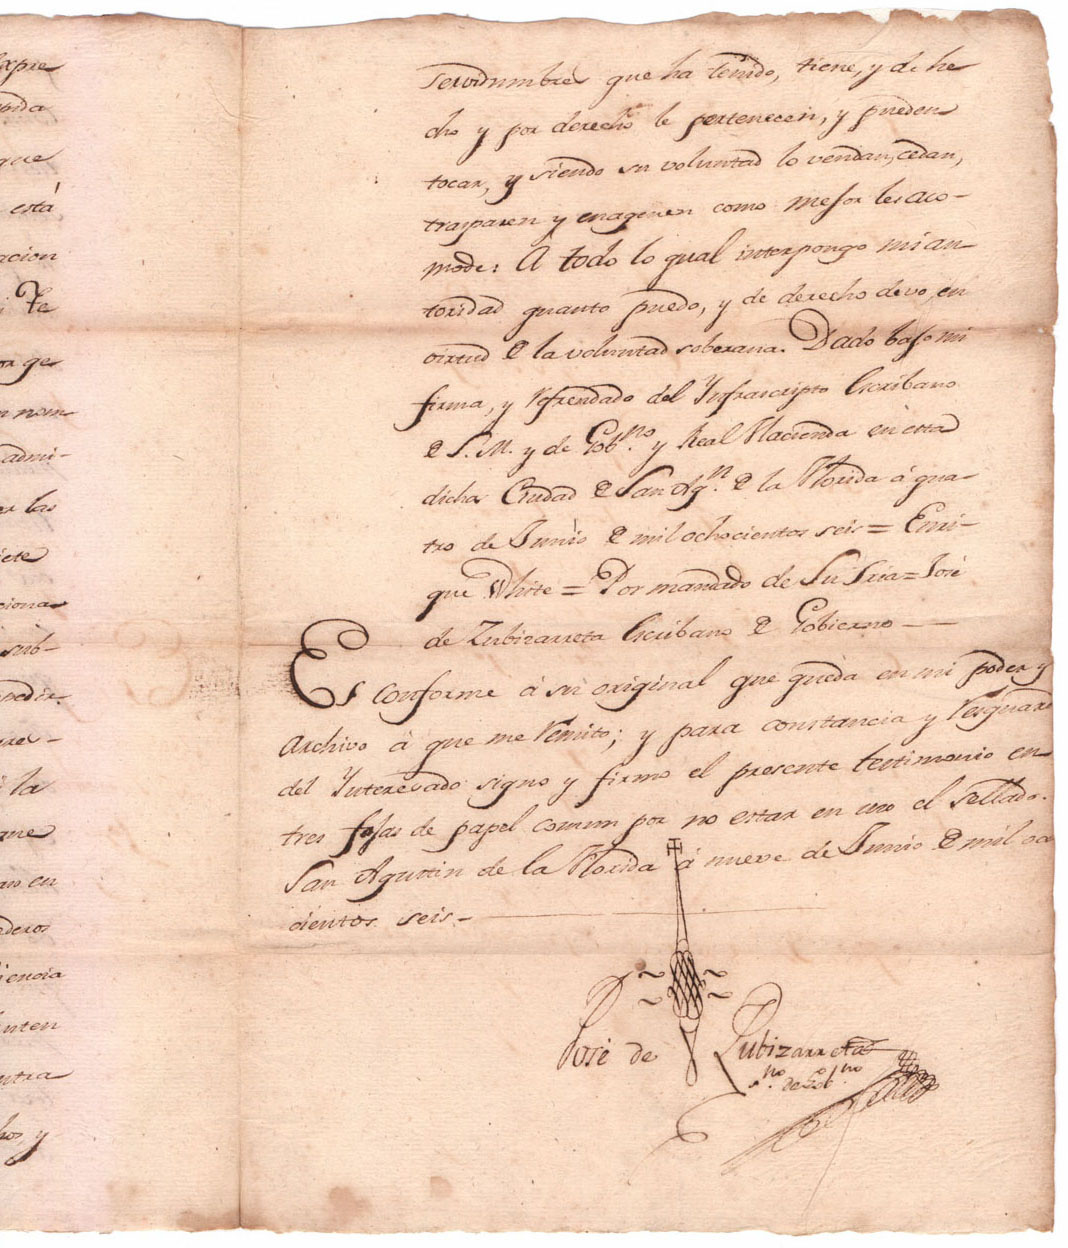 expre
pida
que
está
acion
i Fe
or ge
n nom
admi-
er las
iete
ciona
sub-
la
en
ederos
iencia
nten
ntra
hos y
servidumbre que ha tenido, tiene, y de he
cho y por derecho le pertenecen, y pueden
tocar, y siendo su voluntad lo vendan, cedan,
traspasen y enagenen como mejor les aco-
mode: A todo lo qual interpongo mi au-
toridad quanto puedo, y de derecho devo, en
virtud de la voluntad soberana. Dado bajo mi
firma, y refrendado del Infrascripto Escribano
de S. M. y de Gobno. y Real Hacienda en esta
dicha Ciudad de San Agn. de la Florida á qua-
tro de Junio de mil ochocientos seis = Enri-
que White = Por mandado de Su Sria = José
de Zubizarreta Escribano de Gobierno —
Es conforme á su original que queda en mi poder y
Archivo á que me remito; y para constancia y resguardo
del Interesado signo y firmo el presente testimonio en
tres fojas de papel comun por no estar en uso el sellado.
San Agustin de la Florida á nueve de Junio de mil ocho
cientos seis. —
José de Zubizarreta
sno. de Gobno.